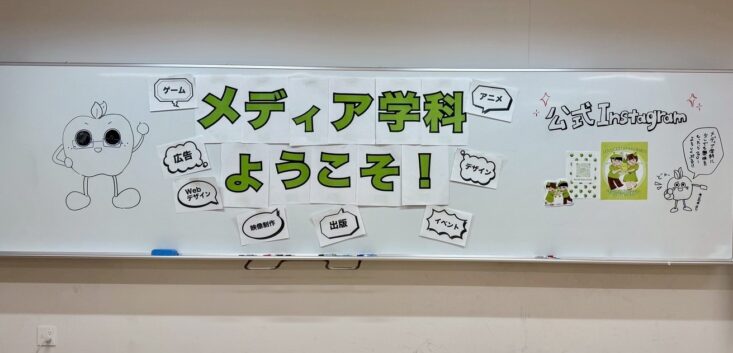 ゲーム
メディア学科
アニメ
広告
ようこそ！
デザイン
Web
デザイン
映像制作
出版
イベント
公式Instagram